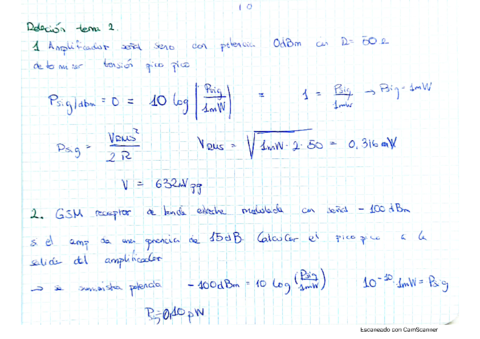 10
Relación tema 2.
1 Amplificador señal seno con potencia 0dBm con R= 50 Ω
determinar tensión pico pico
Psig|dbm = 0 = 10 log |Psig/1mW| = 1 = Psig/1mW → Psig = 1mW
Psig = VRMS²/2R VRMS = √1mW · 2 · 50 = 0,316 mV
V = 632 mVpp
2. GSM receptor de banda estrecha modulada con señal -100 dBm
si el amp da una ganancia de 15dB. Calcular el pico pico a la
salida del amplificador
→ se suministra potencia -100dBm = 10 log (Psig/1mW) 10⁻¹⁰ · 1mW = Psig
P = 0,10 pW
Escaneado con CamScanner